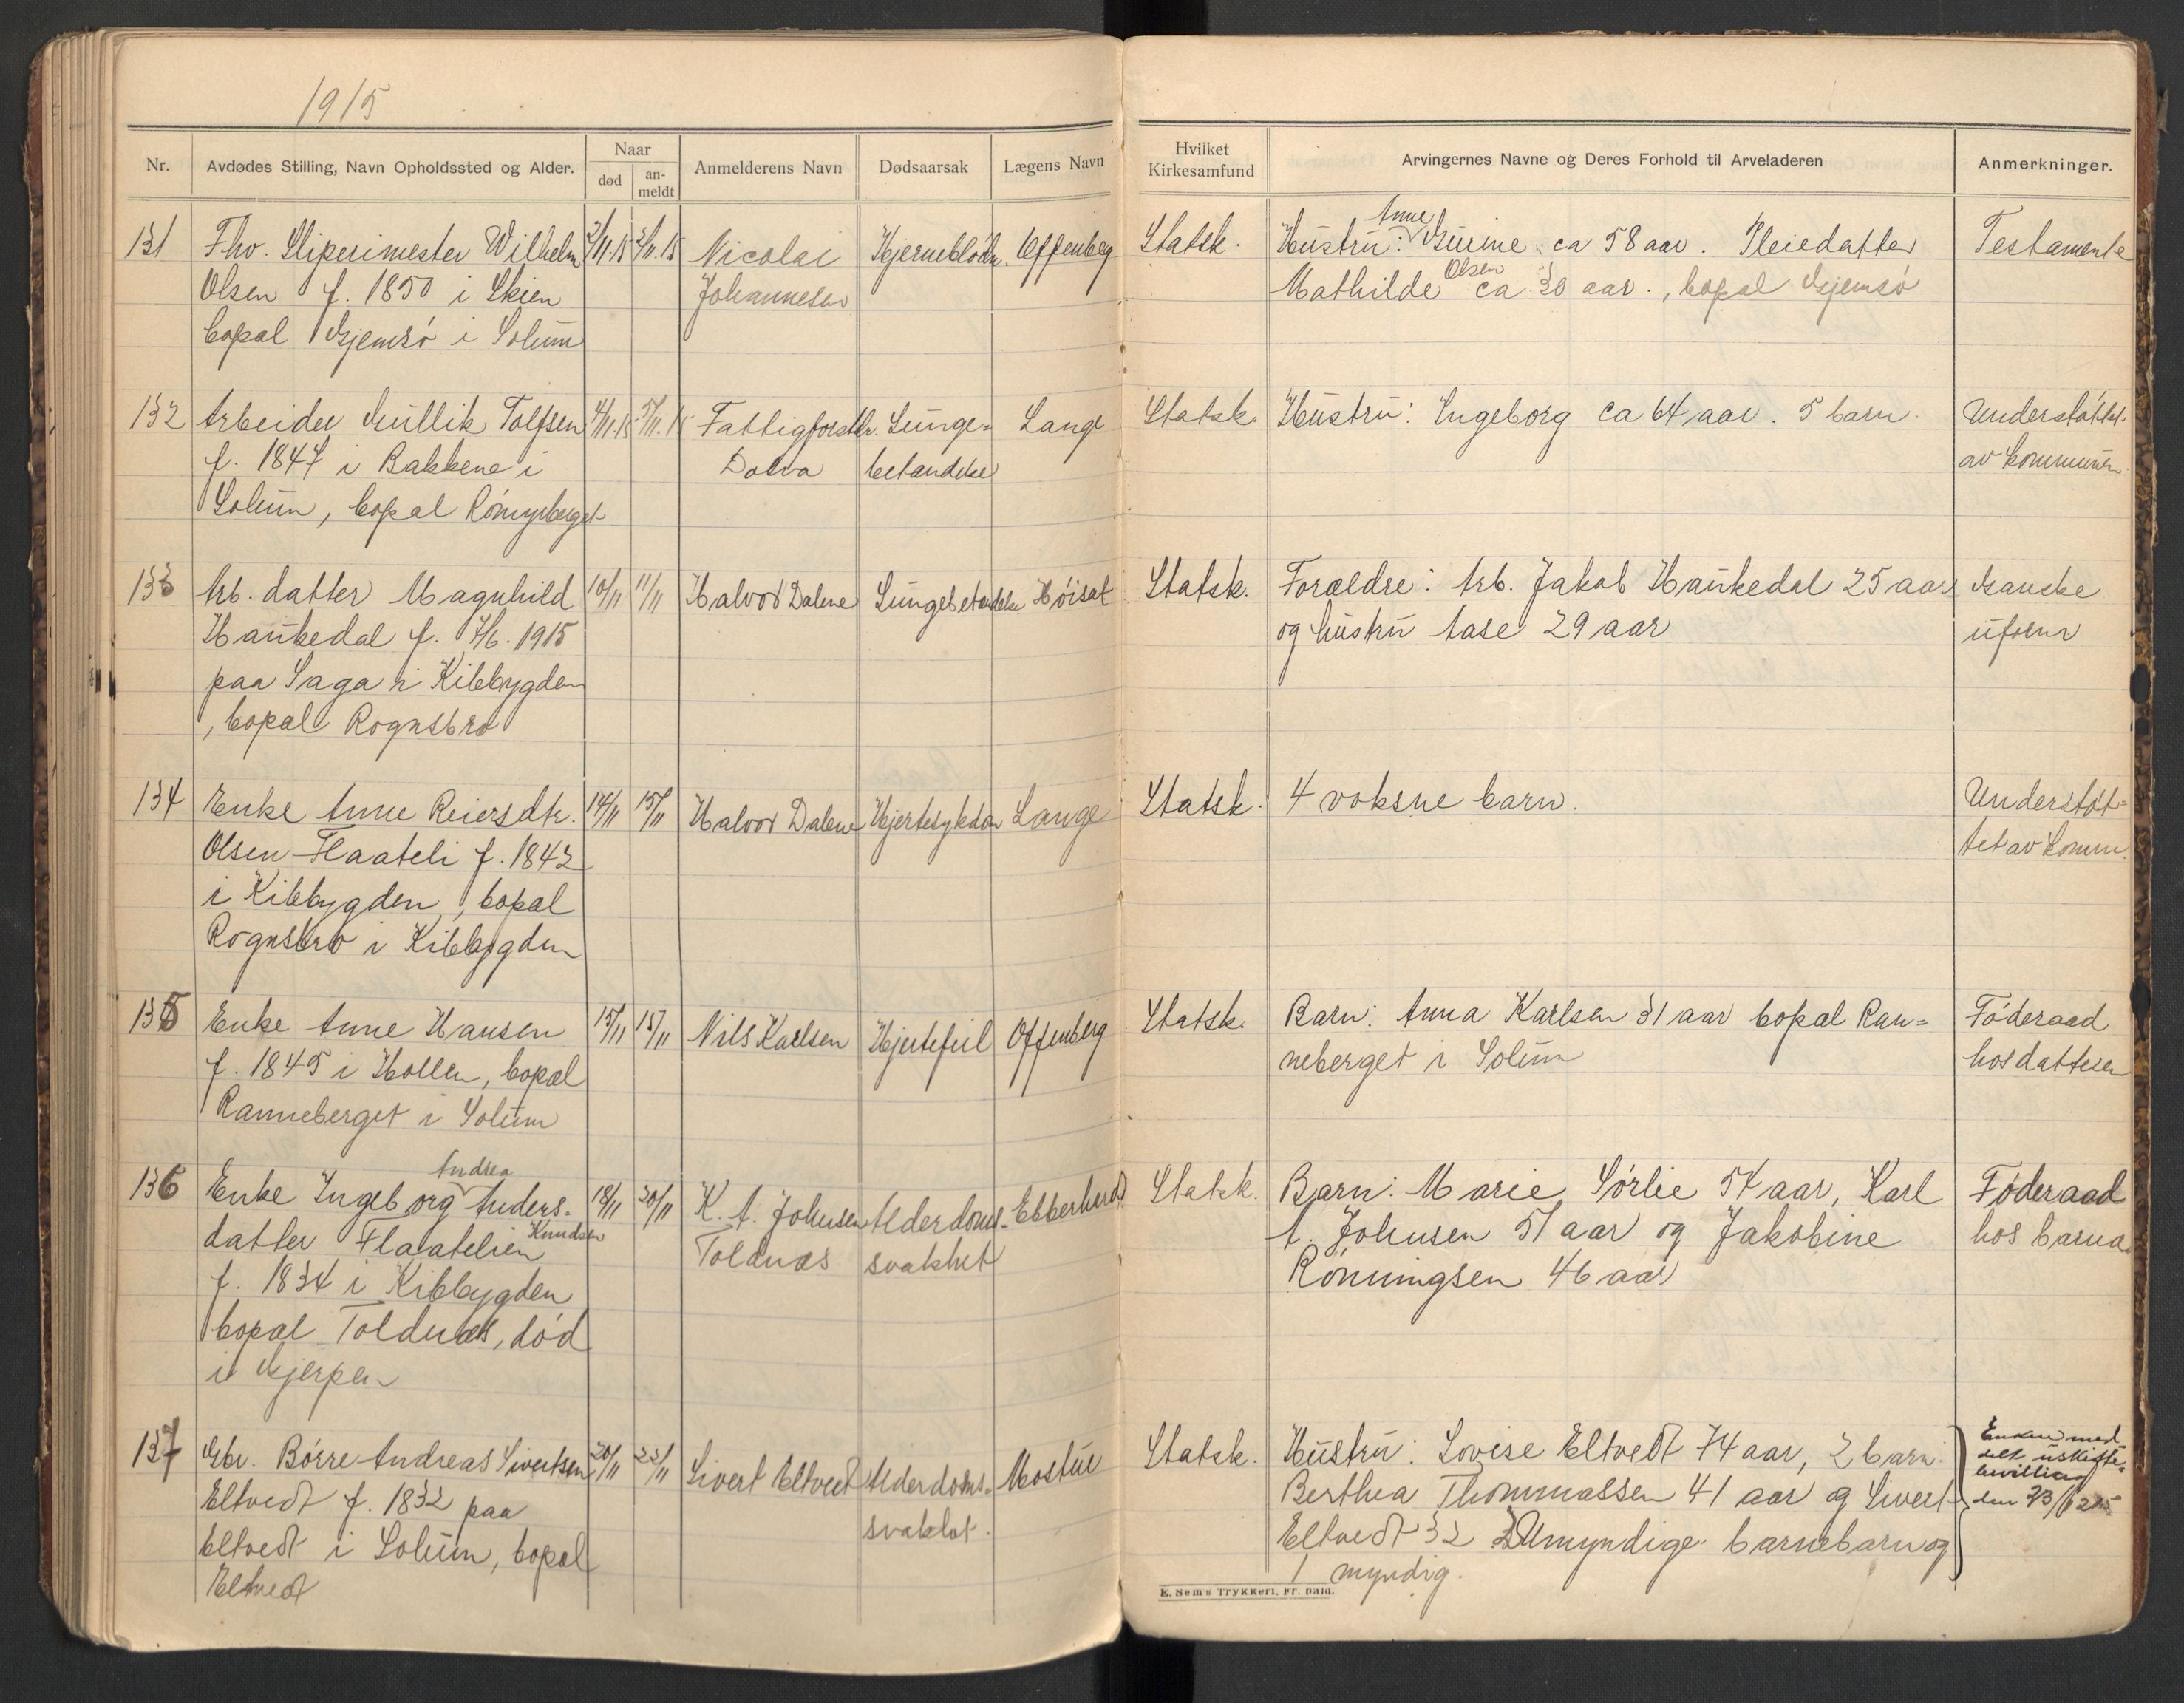 1915
Nr.
Avdødes Stilling, Navn Opholdssted og Alder.
Naar
død
an-
meldt
Anmelderens Navn
Dødsaarsak
Lægens Navn
Hvilket
Kirkesamfund
Arvingernes Navne og Deres Forhold til Arveladeren
Anmerkninger.
131
Fhv. Sliperimester Wilhelm
Olsen f. 1850 i Skien
bopal Gjemsø i Solum
2/11.15
3/11.15
Nicolai
Johannesen
Hjerneblødn.
Offenberg
Statsk.
Anne
Hustru: Gurine ca 58 aar. Pleiedatter
Olsen
Mathilde ca 30 aar., bopal Gjemsø
Testamente
132
Arbeider Gullik Tolfsen
f. 1847 i Bakkene i
Solum, bopal
4/11.15
5/11.15
Fattigforstdr.
Dolva
Lunge-
betændelse
Lange
Statsk.
Hustru: Ingeborg ca 64 aar. 5 barn.
Understøttet
av kommunen
133
Arb. datter Magnhild
Haukedal f. 7/6. 1915
paa Saga i Kilebygden
, bopal Rognsbro
10/11
11/11
Halvor Dalene
Lungebetændelse
Høisæt
Statsk.
Forældre: Arb. Jakob Haukedal 25 aar
og hustru Aase 29 aar
Ganske
uform
134
Enke Anne Reiersdtr.
Olsen Flaateli f. 1842
i Kilebygden, bopal
Rognsbro i Kilebygden
14/11
15/11
Halvor Dalene
Hjertesykdom
Lange
Statsk.
4 voksne barn.
Understøt-
tet av komm.
135
Enke Anne Hansen
f. 1845 i Hollen, bopal
Ranneberget i Solum
15/11
15/11
Nils Karlsen
Hjertefeil
Offenberg
Statsk.
Barn: Anna Karlsen 31 aar bopal Ran-
neberget i Solum
Føderaad
hos datteren
136
Andrea
Enke Ingeborg Anders-
datter Flaatelien Knudsen
f. 1834 i Kilebygden
bopal Toldnæs, død
i Gjerpen
18/11
20/11
K. A. Johnsen
Toldnæs
Alderdoms-
svakhet
Statsk.
Barn: Marie Sørlie 54 aar, Karl
A. Johnsen 51 aar og Jakobine
Rønningsen 46 aar
Føderaad
hos barna
137
Gbr. Børre Andreas Sivertsen
Eltvedt f. 1832 paa
Eltvedt i Solum, bopal
Eltvedt
20/11
22/11
Sivert Eltvedt
Alderdoms-
svakhet.
Mostue
Statsk.
Hustru: Lovise Eltvedt 74 aar, 2 barn:
Berthea Thommassen 41 aar og Sivert
Eltvedt 32 2 Umyndige barnebarn og
1 myndig.
Enken med
delt uskifte-
bevilling
den
E. Sems Trykkeri, Fr. hald.